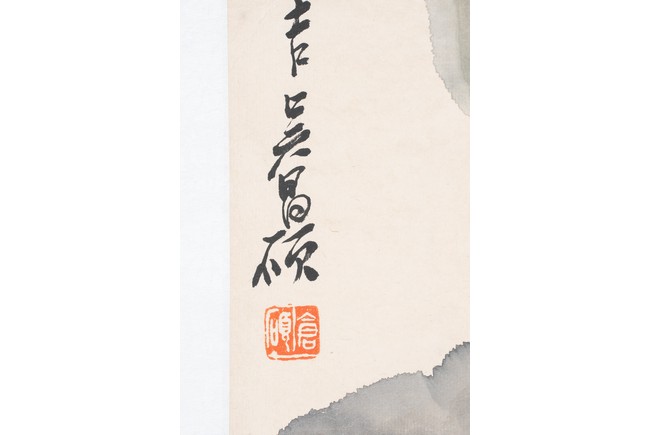 吉吳昌碩
倉碩